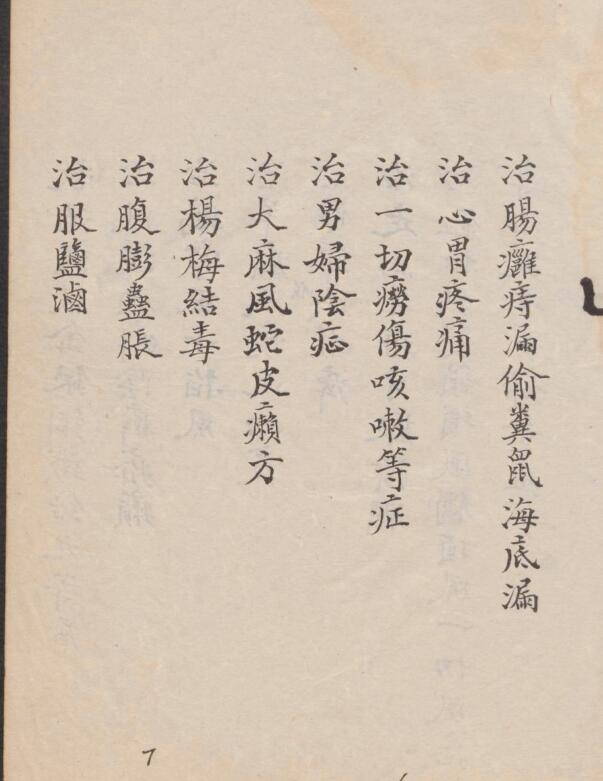 治腸癰痔漏偷糞鼠海底漏
治心胃疼痛
治一切癆傷咳嗽等症
治男婦陰症
治大麻風蛇皮癩方
治楊梅結毒
治腹膨蠱脹
治服鹽滷
7